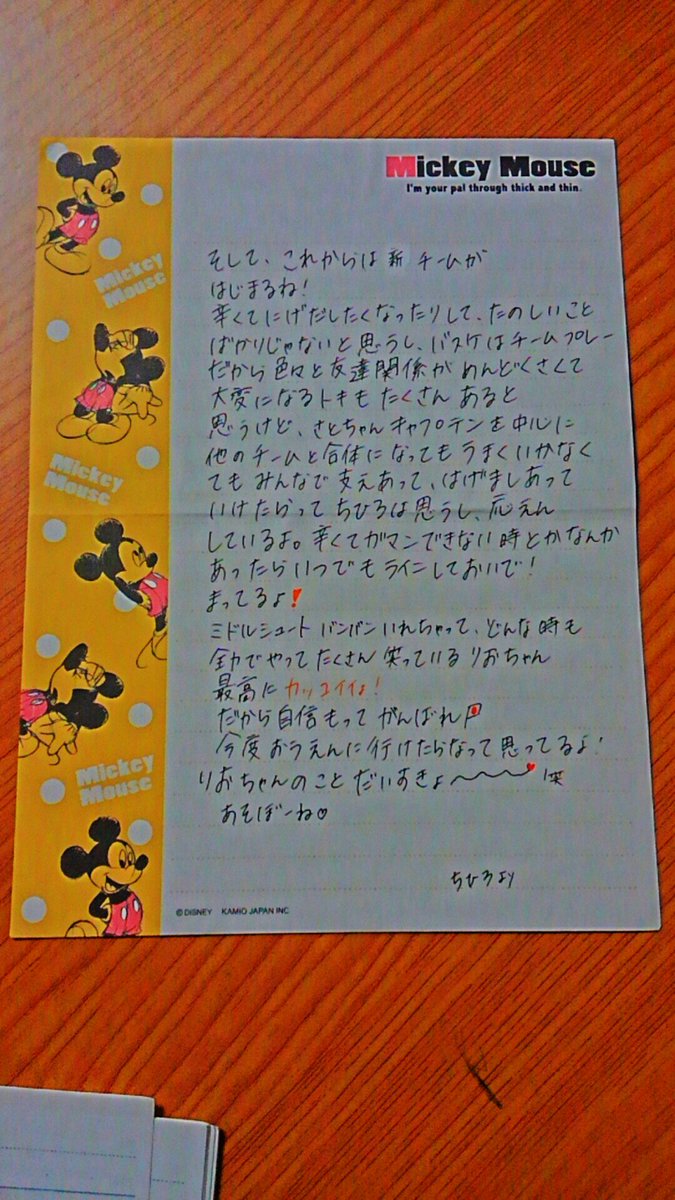 Mickey Mouse
I'm your pal through thick and thin.
Mickey
Mouse
Mickey
Mouse
Mickey
Mouse
そして、これからは新チームが
はじまるね!
辛くてにげだしたくなったりして、たのしいこと
ばかりじゃないと思うし、バスケはチームプレー
だから色々と友達関係がめんどくさくて
大変になるトキもたくさんあると
思うけど、さとちゃんキャプテンを中心に
他のチームと合体になってもうまくいかなく
てもみんなで支えあって、はげましあって
いけたらって ちひろは思うし、応えん
しているよ。辛くてガマンできない時とかなんか
あったらいつでもラインしておいで!
まってるよ!
ミドルシュート バンバンいれちゃって、どんな時も
全力でやってたくさん笑っているりおちゃん
最高にカッコイイよ!
だから自信もってがんばれ
今度おうえんに行けたらなって思ってるよ!
りおちゃんのこと だいすきよ〜〜〜♥笑
あそぼーね♡
ちひろより
© DISNEY KAMIO JAPAN INC